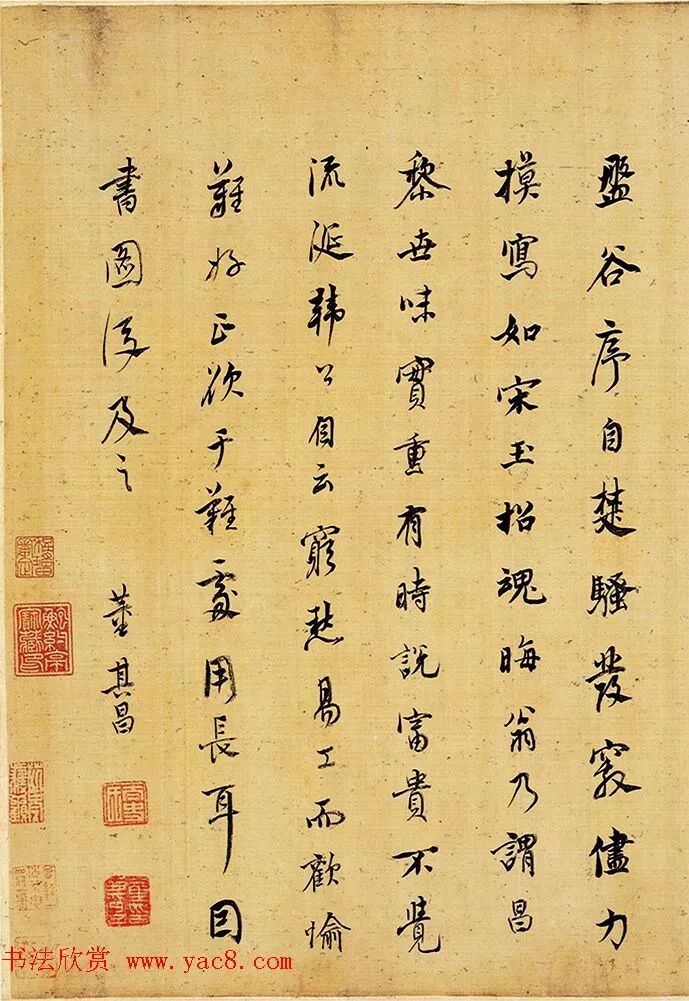 盤谷序自楚騷發竅儘力
摸寫如宋玉招魂晦翁乃謂昌
黎世味實重有時說富貴不覺
流涎韓公自云窮愁易工而歡愉
難好正欲于難處用長耳因
書圖後及之
董其昌
书法欣赏 www.yac8.com